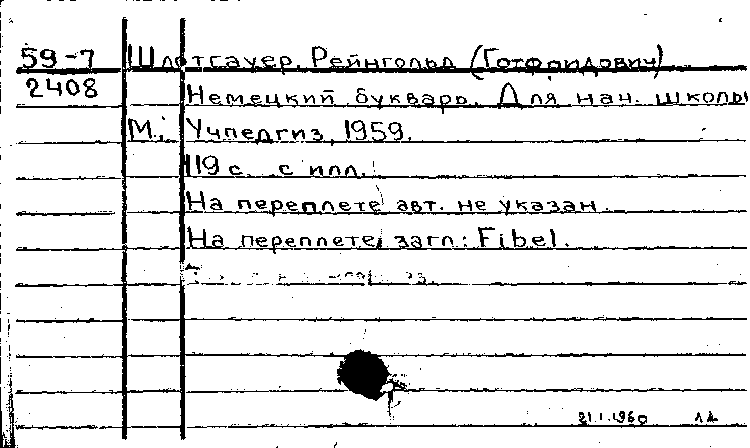 59-7 Шлотгауер, Рейнгольд (Готфридович)
2408 Немецкий букварь. Для нач. школы
М., Учпедгиз, 1959.
119 с. с илл.
На переплете авт. не указан.
На переплете загл: Fibel.
21.1.1960